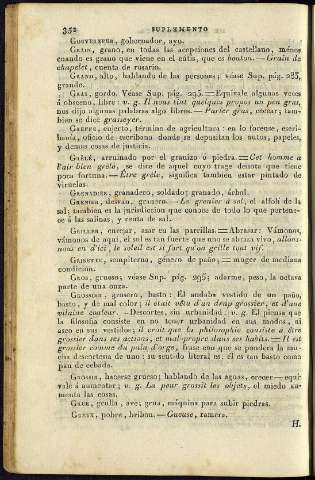 352 SUPLEMENTO
GOUVERNEUR, gobernador, ayo.
GRAIN, grano, en todas las acepciones del castellano, ménos
cuando es grano que viene en el cútis, que es bouton. — Grain de
chapelet, cuenta de rosario.
GRAND, alto, hablando de las personas; véase Sup. pág. 285,
grande.
GRAS, gordo. Véase Sup. pág. 295. = Equivale algunas veces
á obsceno, libre: v. g. Il nous tint quelques propos un peu gras,
nos dijo algunas palabras algo libres. — Parler gras, cecear; tam-
bien se dice grasseyer.
GREFFE, enjerto, término de agricultura: en lo forense, escri-
banía, oficio de escribano donde se depositan los autos, papeles,
y demas cosas de justicia.
GRÊLÉ, arruinado por el granizo ó piedra. = Cet homme a
l'air bien grêlé, se dice de aquel cuyo trage denota que tiene
poca fortuna. — Être grêlé, significa tambien estar pintado de
viruelas.
GRENADIER, granadero, soldado; granado, árbol.
GRENIER, desvan, granero. — Le grenier à sel, el alfolí de la
sal; tambien es la jurisdiccion que conoce de todo lo que pertene-
ce á las salinas, y renta de sal.
GRILLER, enrejar, asar en las parrillas. = Abrasar: Vámonos,
vámonos de aquí, el sol es tan fuerte que uno se abrasa vivo, allons-
nous en d'ici, le soleil est si fort qu'on grille tout vif.
GRISETTE, sempiterna, género de paño; = muger de mediana
condicion.
GROS, grueso; véase Sup. pág. 295; adarme, peso, la octava
parte de una onza.
GROSSIER, grosero, basto: El andaba vestido de un paño,
basto, y de mal color; il était vêtu d'un drap grossier, et d'une
vilaine couleur. — Descortes, sin urbanidad: v. g. El piensa que
la filosofía consiste en no tener urbanidad en sus modos, ni
aseo en sus vestidos; il croit que la philosophie consiste à être
grossier dans ses actions, et mal-propre dans ses habits. = Il est
grossier comme du pain d'orge, frase con que se pondera la mu-
cha descortesía de uno: su sentido literal es: él es tan basto como
pan de cebada.
GROSSIR, hacerse grueso; hablando de las aguas, crecer — equi-
vale á aumentar; v. g. La peur grossit les objets, el miedo au-
menta las cosas.
GRUE, grulla, ave; grua, máquina para subir piedras.
GUEUX, pobre, bribon. — Gueuse, ramera.
H.